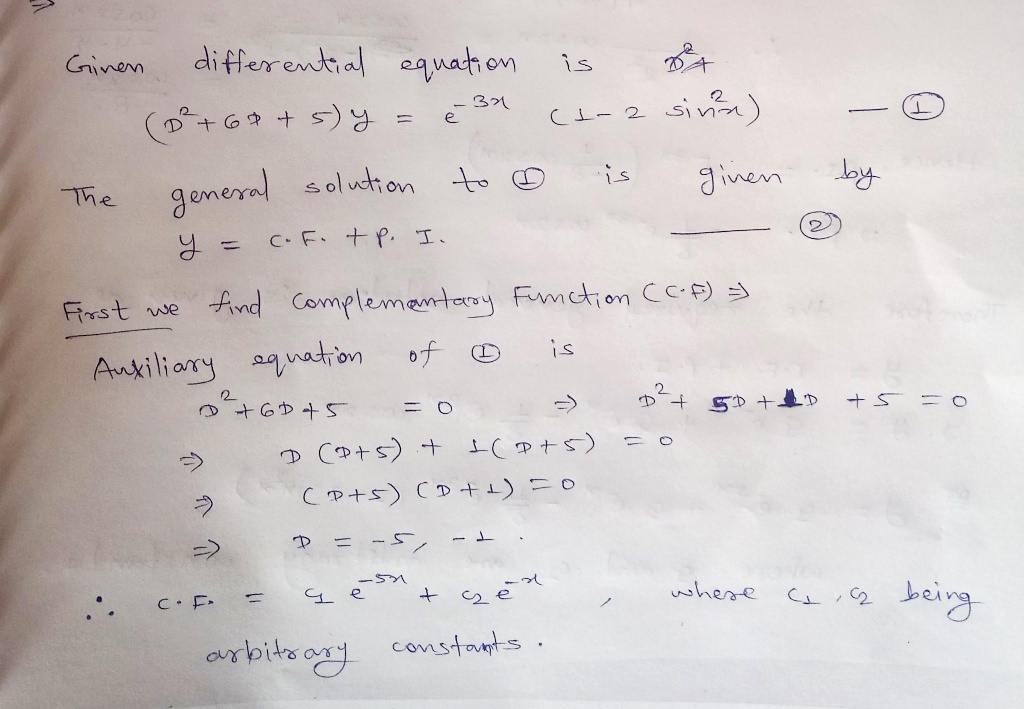 ⇒
Given differential equation is
(D²+6D+5)y = e⁻³ˣ (1-2 sin²x) — ①
The general solution to ① is given by
y = C.F. + P.I. — ②
First we find Complementary Function (C.F) ⇒
Auxiliary equation of ① is
D²+6D+5 = 0 ⇒ D²+ 5D + 1D +5 = 0
⇒ D (D+5) + 1(D+5) = 0
⇒ (D+5) (D+1) = 0
⇒ D = -5, -1 .
∴ C.F. = c₁ e⁻⁵ˣ + c₂ e⁻ˣ , where c₁, c₂ being
arbitrary constants .